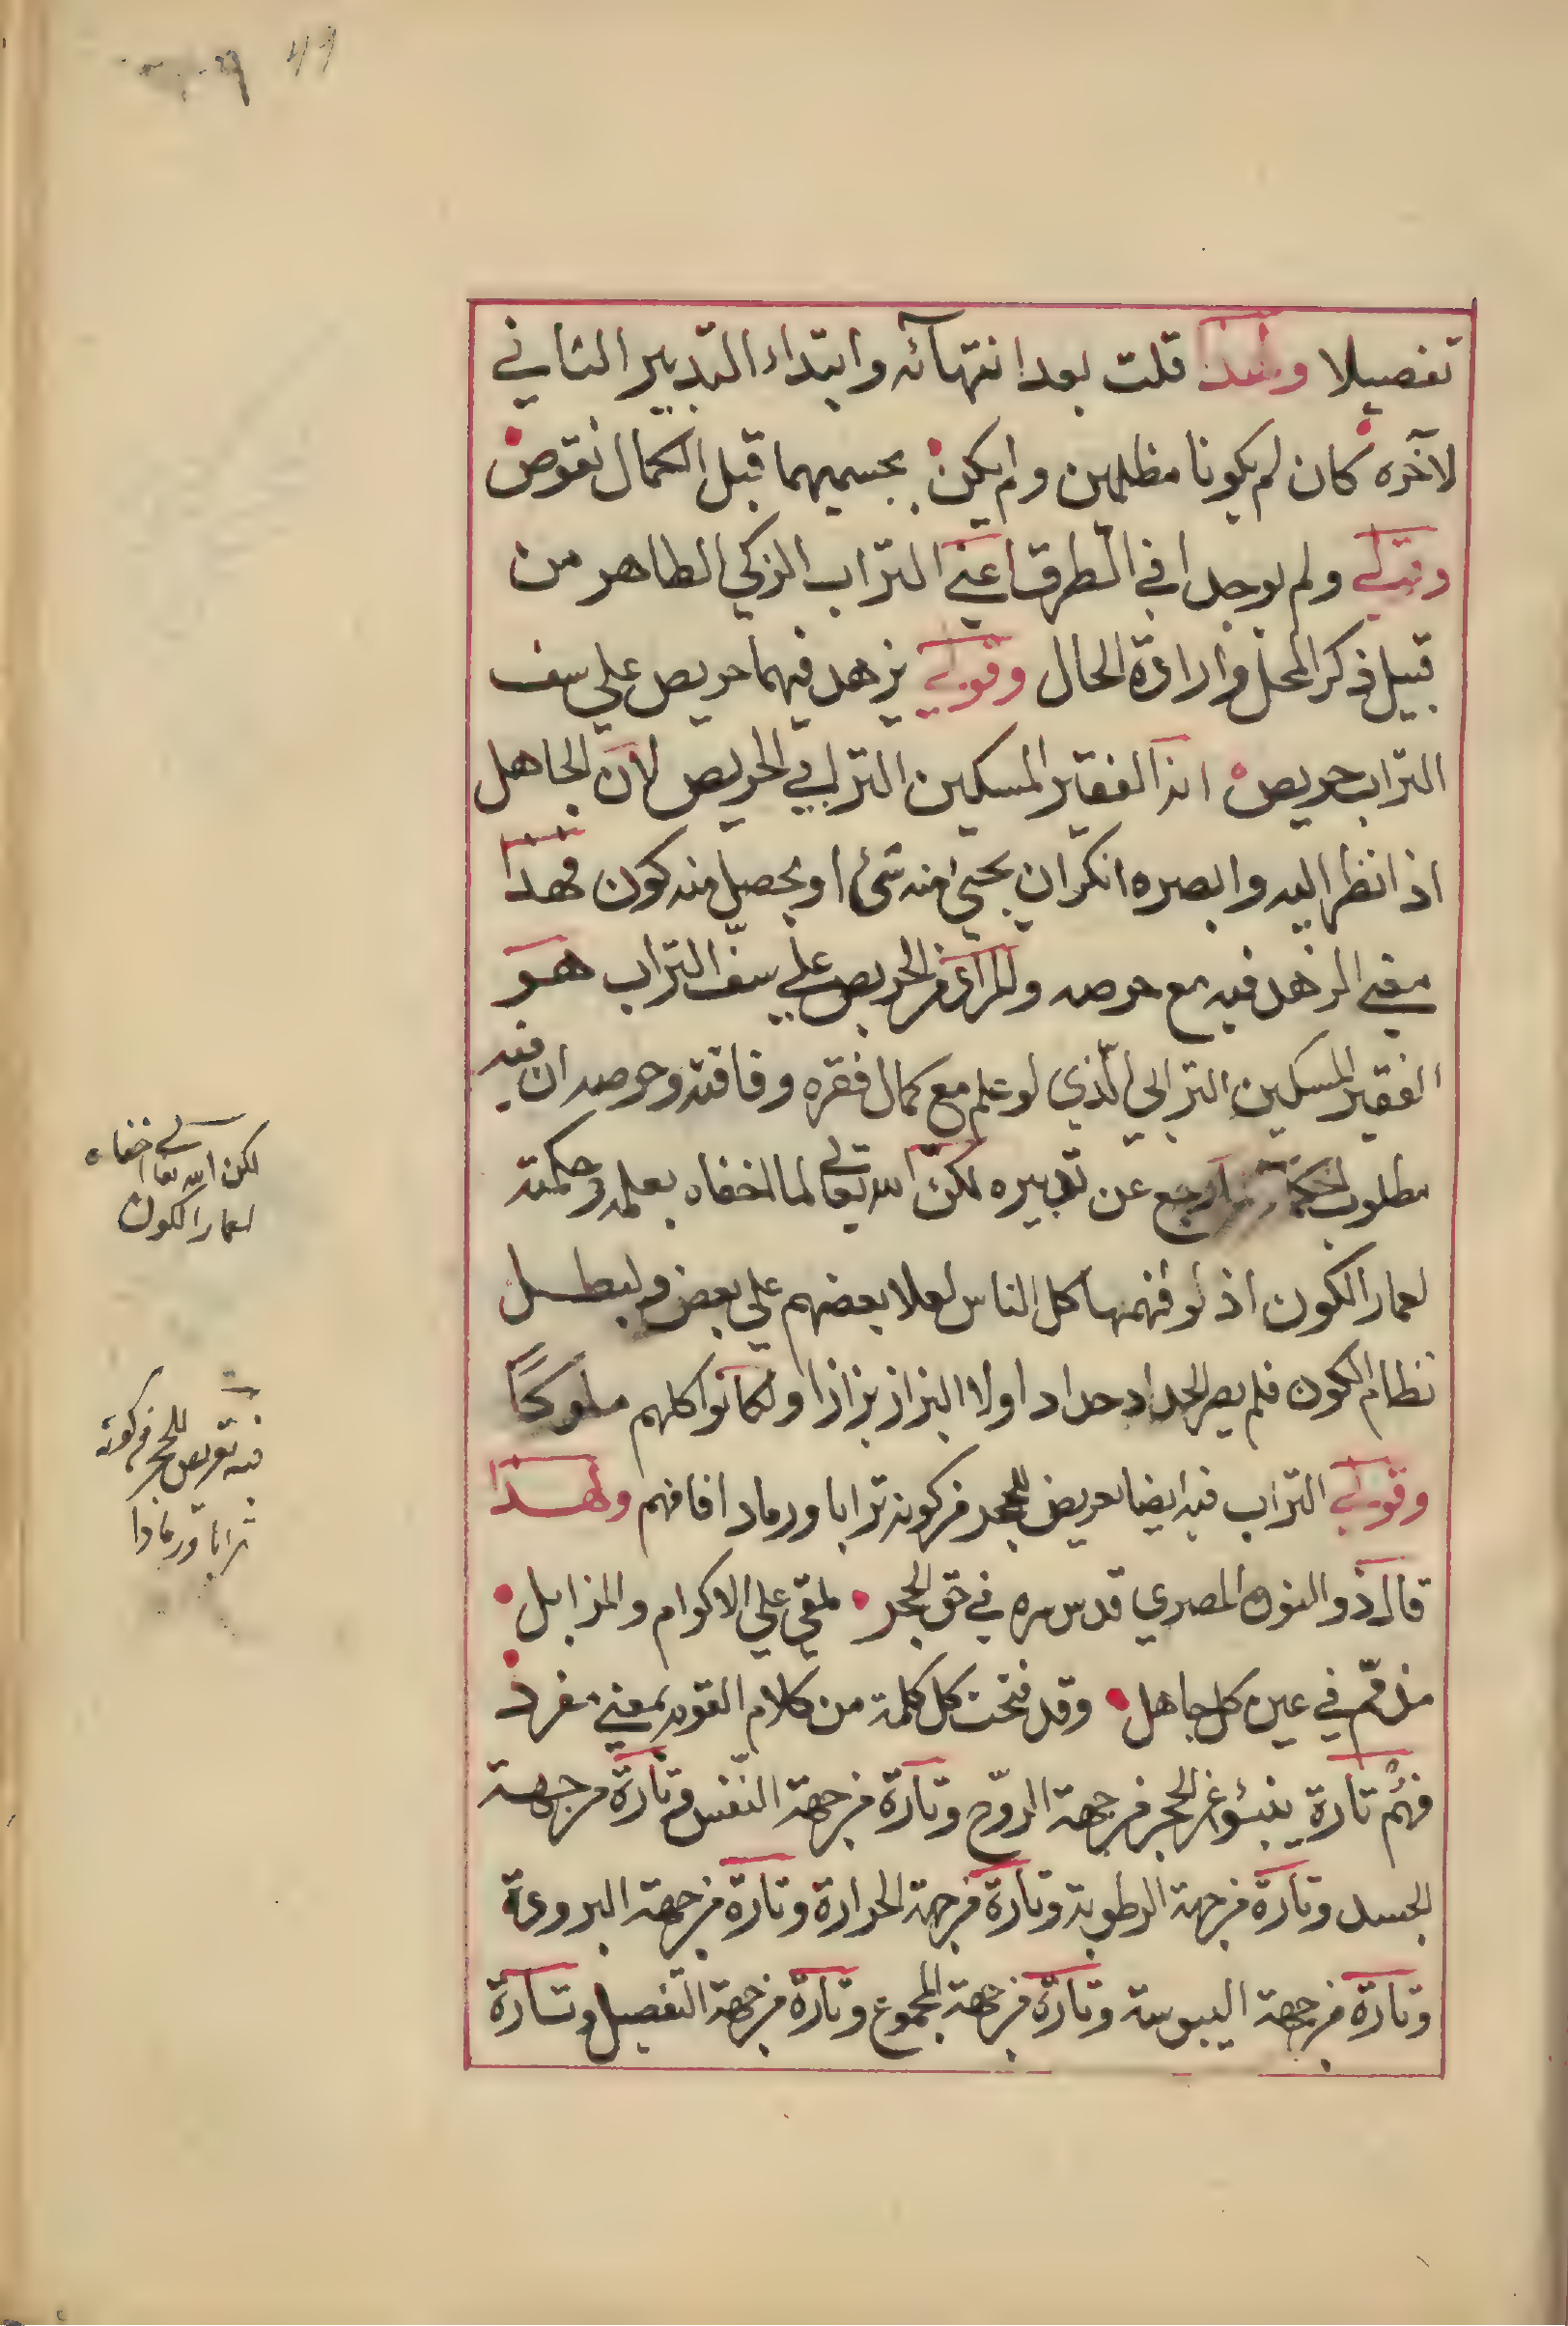 تفصيلا ولهذا قلت بعد انتهآئه وابتداء التدبير الثاني
لآخره كان لم يكونا مظلمين ولم يكن بجسميهما قبل الكمال نقوص
وقولي ولم يوجدا في الطرق اعني التراب الزكي الطاهر من
قبيل ذكر المحل وارادة الحال وقولي يزهد فيهما حريص علي سف
التراب حريص انه الفقير المسكين الترابي الحريص لان الجاهل
اذا نظر اليه وابصره انكر ان يجئ منه شئ او يحصل منه كون فهذا
معني الزهد فيه مع حرصه والمراد من الحريص علي سف التراب هو
الفقير المسكين الترابي الذي لو علم مع كمال فقره وفاقته وحرصه ان فيه
مطلوب رجع عن تدبيره لكن الله تعالي لما اخفاه بعلمه وحكمته
لعمار الكون اذ لو فهمها كل الناس لعلا بعضهم علي بعض ولبطل
نظام الكون فلم يصر الحداد حدادا ولا البزاز بزازا ولكانوا كلهم ملوكا
وقولي التراب فيه ايضا تعريض للحجر من كونه ترابا ورمادا فافهم ولهذا
قال ذو النون المصري قدس سره في حق الحجر ملقي علي الاكوام والمزابل
مذمم في عين كل جاهل وقد فتحت كل كلمة من كلام القوم بمعني مفرد
فهُم تارة ينبئو عن الحجر من جهة الروح وتارة من جهة النفس وتارة من جهة
الجسد وتارة من جهة الرطوبة وتارة من جهة الحرارة وتارة من جهة البرودة
وتارة من جهة اليبوسة وتارة من جهة المجموع وتارة من جهة التفصيل وتارة
لكن الله تعالي اخفاه
لعمار الكون
فيه تعريض للحجر من كونه
ترابا ورمادا